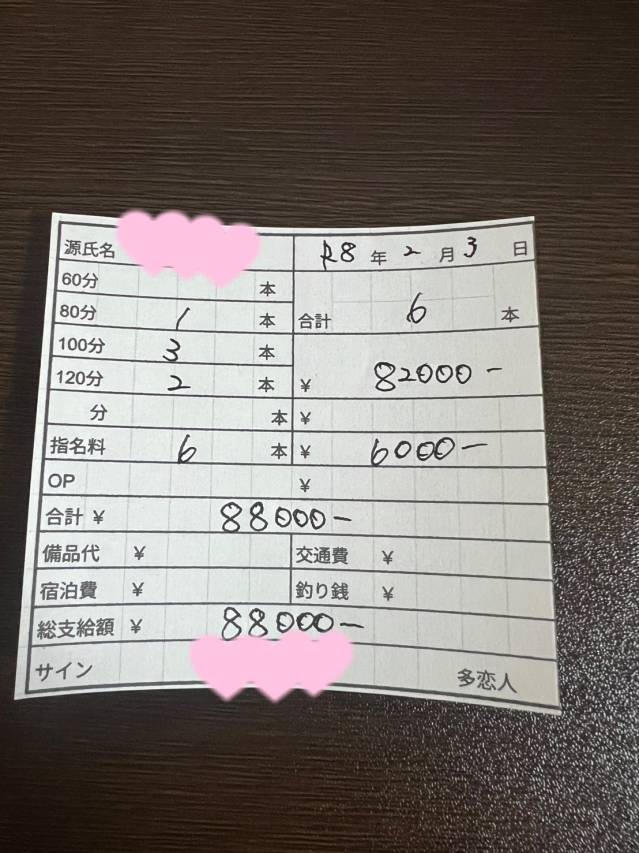 源氏名 R8年2月3日
60分 本
80分 1本 合計 6本
100分 3本
120分 2本 ¥ 82000-
分 本 ¥
指名料 6本 ¥ 6000-
OP ¥
合計 ¥ 88000-
備品代 ¥ 交通費 ¥
宿泊費 ¥ 釣り銭 ¥
総支給額 ¥ 88000-
サイン 多恋人